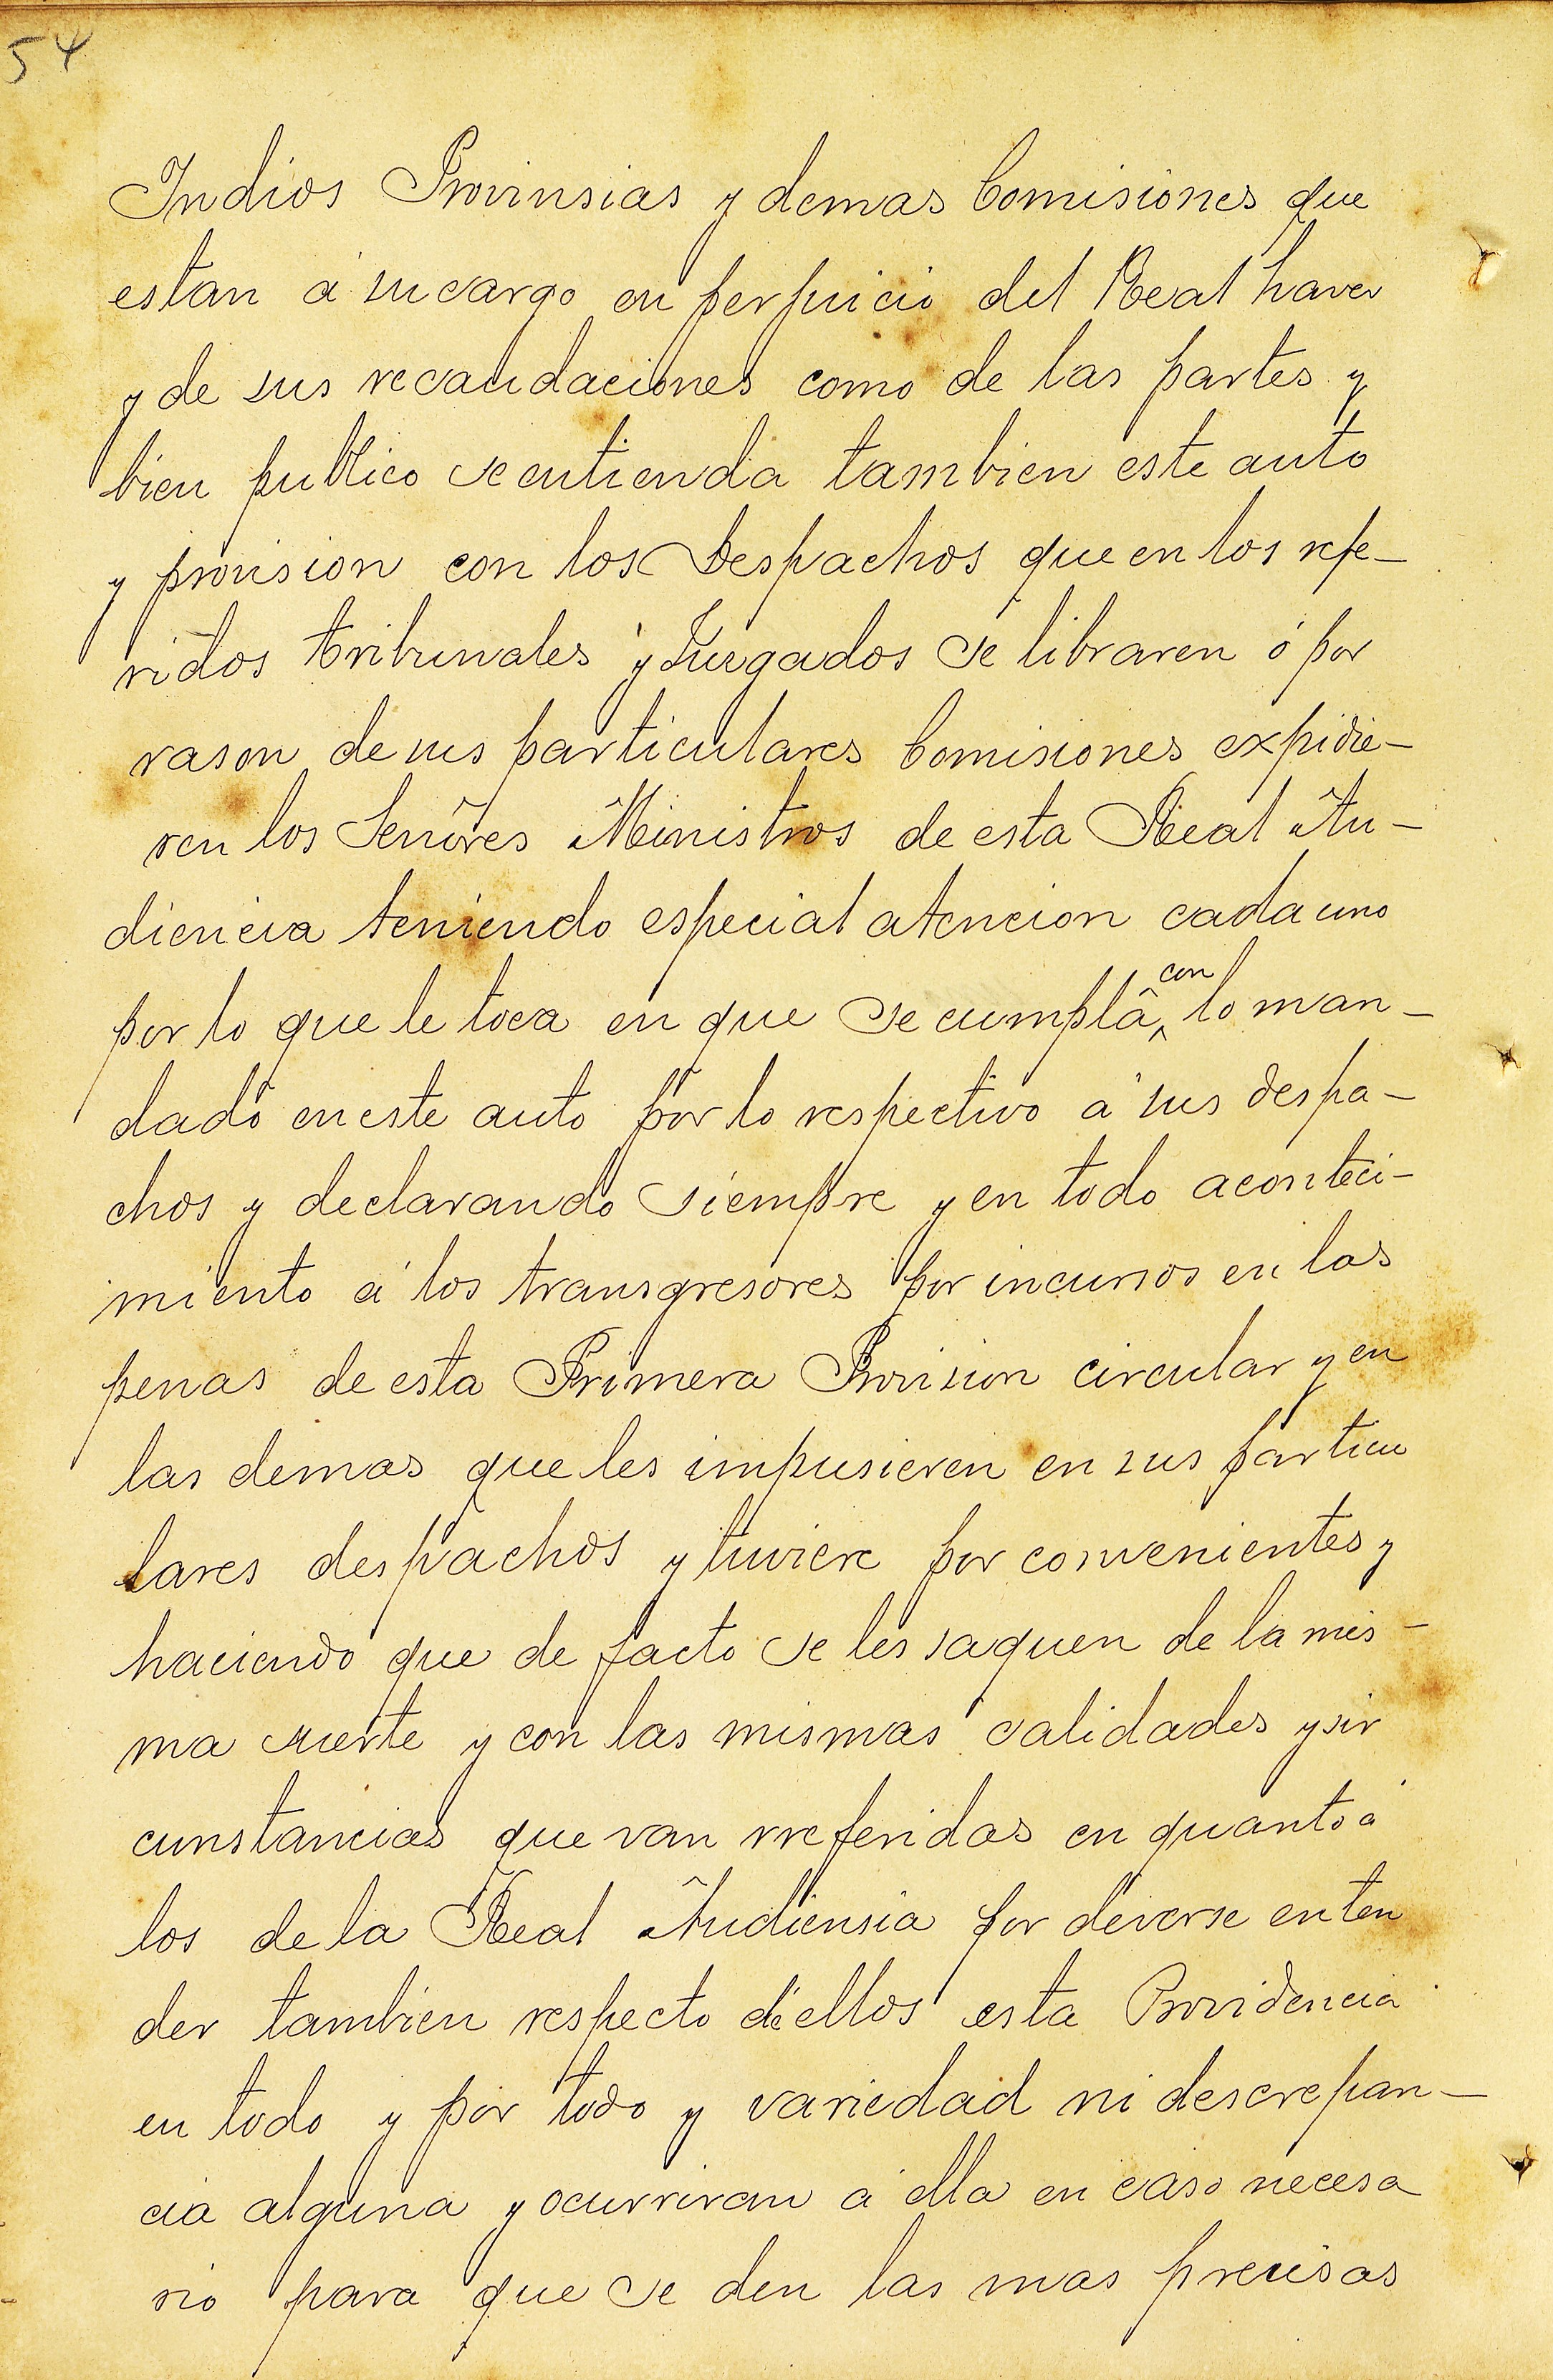 54
Indios Provinsias y demas Comisiones que
estan á su cargo en perjuicio del Real haver
y de sus recaudaciones como de las partes y
bien publico se entienda tambien este auto
y provision con los Despachos que en los refe-
ridos tribunales y Jurgados se libraren ó por
rason de sus particulares Comisiones expidie-
ren los Señores Ministros de esta Real Au-
diencia teniendo especial atencion cada uno
por lo que le toca en que se cumpla con lo man-
dado en este auto por lo respectivo á sus despa-
chos y declarando siempre y en todo aconteci-
miento á los transgresores por incursos en las
penas de esta Primera Provision circular y en
las demas que les impusieren en sus particu
lares despachos y tuviere por convenientes y
haciendo que de facto se les saquen de la mis-
ma suerte y con las mismas calidades y sir
cunstancias que van rreferidas en quanto á
los de la Real Audiensia por deverse enten
der tambien respecto de ellos esta Providencia
en todo y por todo y variedad ni descrepan-
cia alguna y ocurriran á ella en caso necesa
rio para que se den las mas precisas